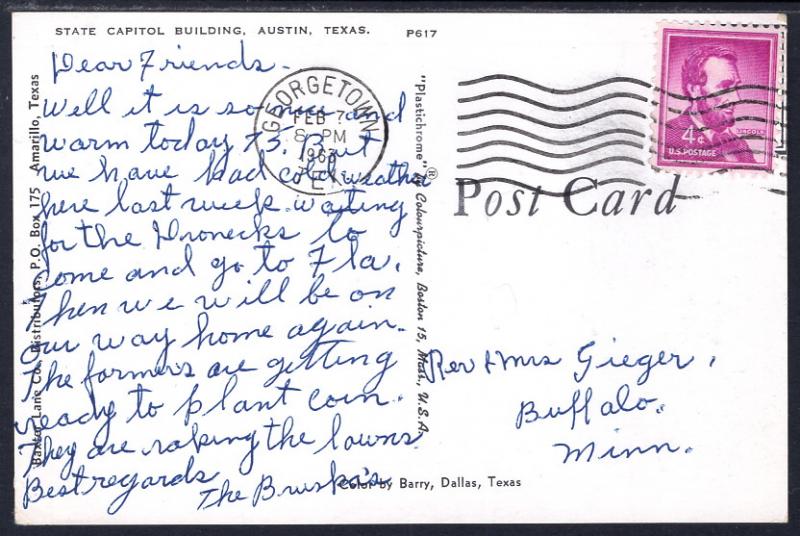 STATE CAPITOL BUILDING, AUSTIN, TEXAS. P617
Dear Friends-
Well it is so nice and
warm today 75. But
we have had cold weather
here last week. waiting
for the Pronecks to
come and go to Fla.
Then we will be on
our way home again.
The farmers are getting
ready to plant corn.
They are raking the lawns.
Best regards
The Bruska's
Baxter Lane Co., Distributors, P.O. Box 175 Amarillo, Texas
"Plastichrome"® by Colourpicture, Boston 15, Mass., U.S.A.
Color by Barry, Dallas, Texas
GEORGETOWN
FEB 7
8 PM
1963
TEX.
4¢
LINCOLN
U.S. POSTAGE
Post Card
Rev & Mrs Gieger,
Buffalo.
Minn.